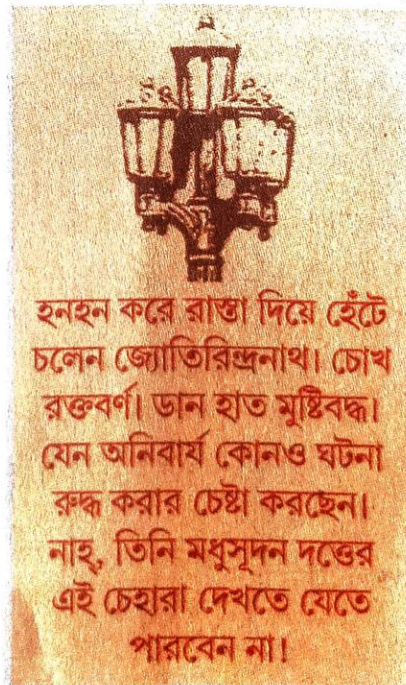 হনহন করে রাস্তা দিয়ে হেঁটে
চলেন জ্যোতিরিন্দ্রনাথ। চোখ
রক্তবর্ণ। ডান হাত মুষ্টিবদ্ধ।
যেন অনিবার্য কোনও ঘটনা
রুদ্ধ করার চেষ্টা করছেন।
নাহ্, তিনি মধুসূদন দত্তের
এই চেহারা দেখতে যেতে
পারবেন না!